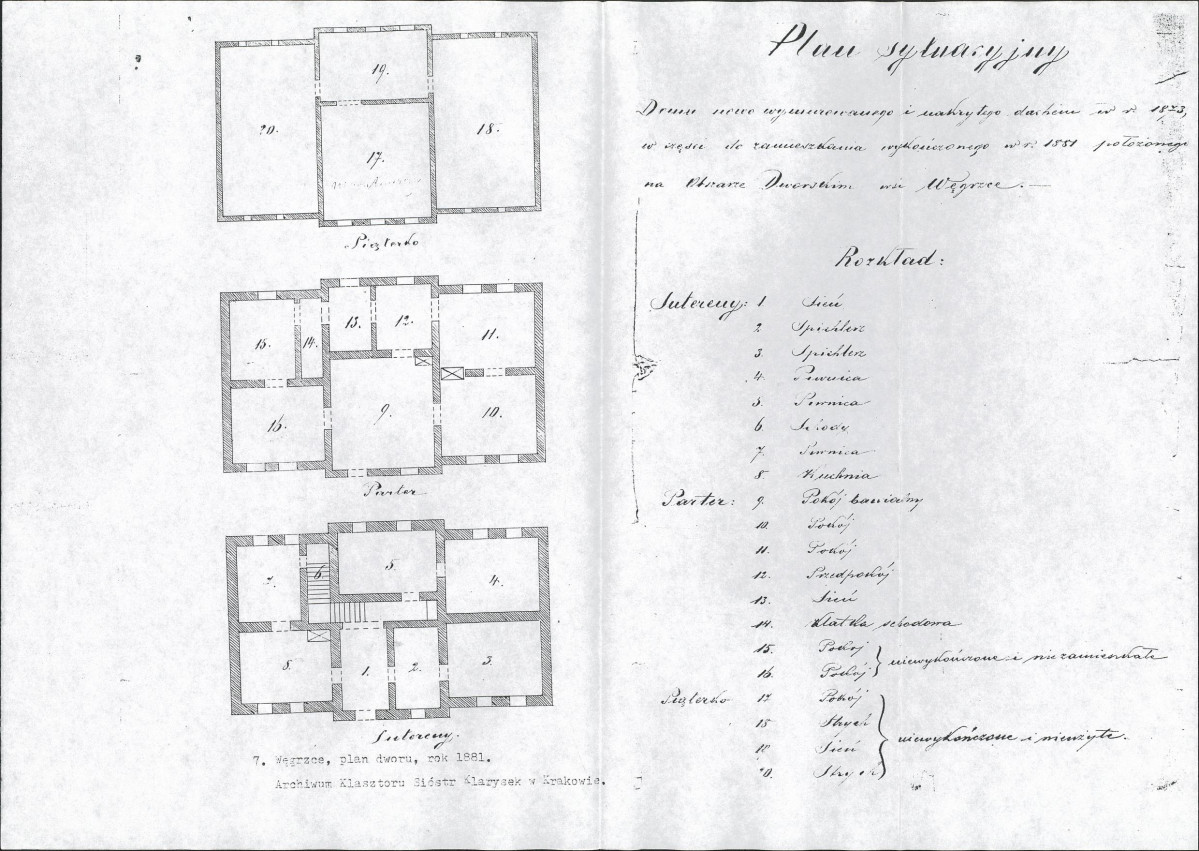 19.
20.
18.
17.
Pięterko
13.
12.
11.
15.
14.
16.
9.
10.
Parter
7.
6
5.
4.
8.
1.
2.
3.
Sutereny.
7. Węgrzce, plan dworu, rok 1881.
Archiwum Klasztoru Sióstr Klarysek w Krakowie.
Plan sytuacyjny
Domu nowo wymurowanego i nakrytego dachem w r. 1873,
w części do zamieszkania wykończonego w r. 1881 położonego
na Obszarze Dworskim wsi Węgrzce. —
Rozkład:
Sutereny: 1 Sień
2. Spichlerz
3. Spichlerz
4. Piwnica
5. Piwnica
6. Schody
7. Piwnica
8. Kuchnia
Parter: 9. Pokój bawialny
10. Pokój
11. Pokój
12. Przedpokój
13. Sień
14. Klatka schodowa
15. Pokój
16. Pokój } niewykończone i niezamieszkałe
Pięterko 17. Pokój
18 Strych
19. Sień } niewykończone i nieużyte.
20. Strych